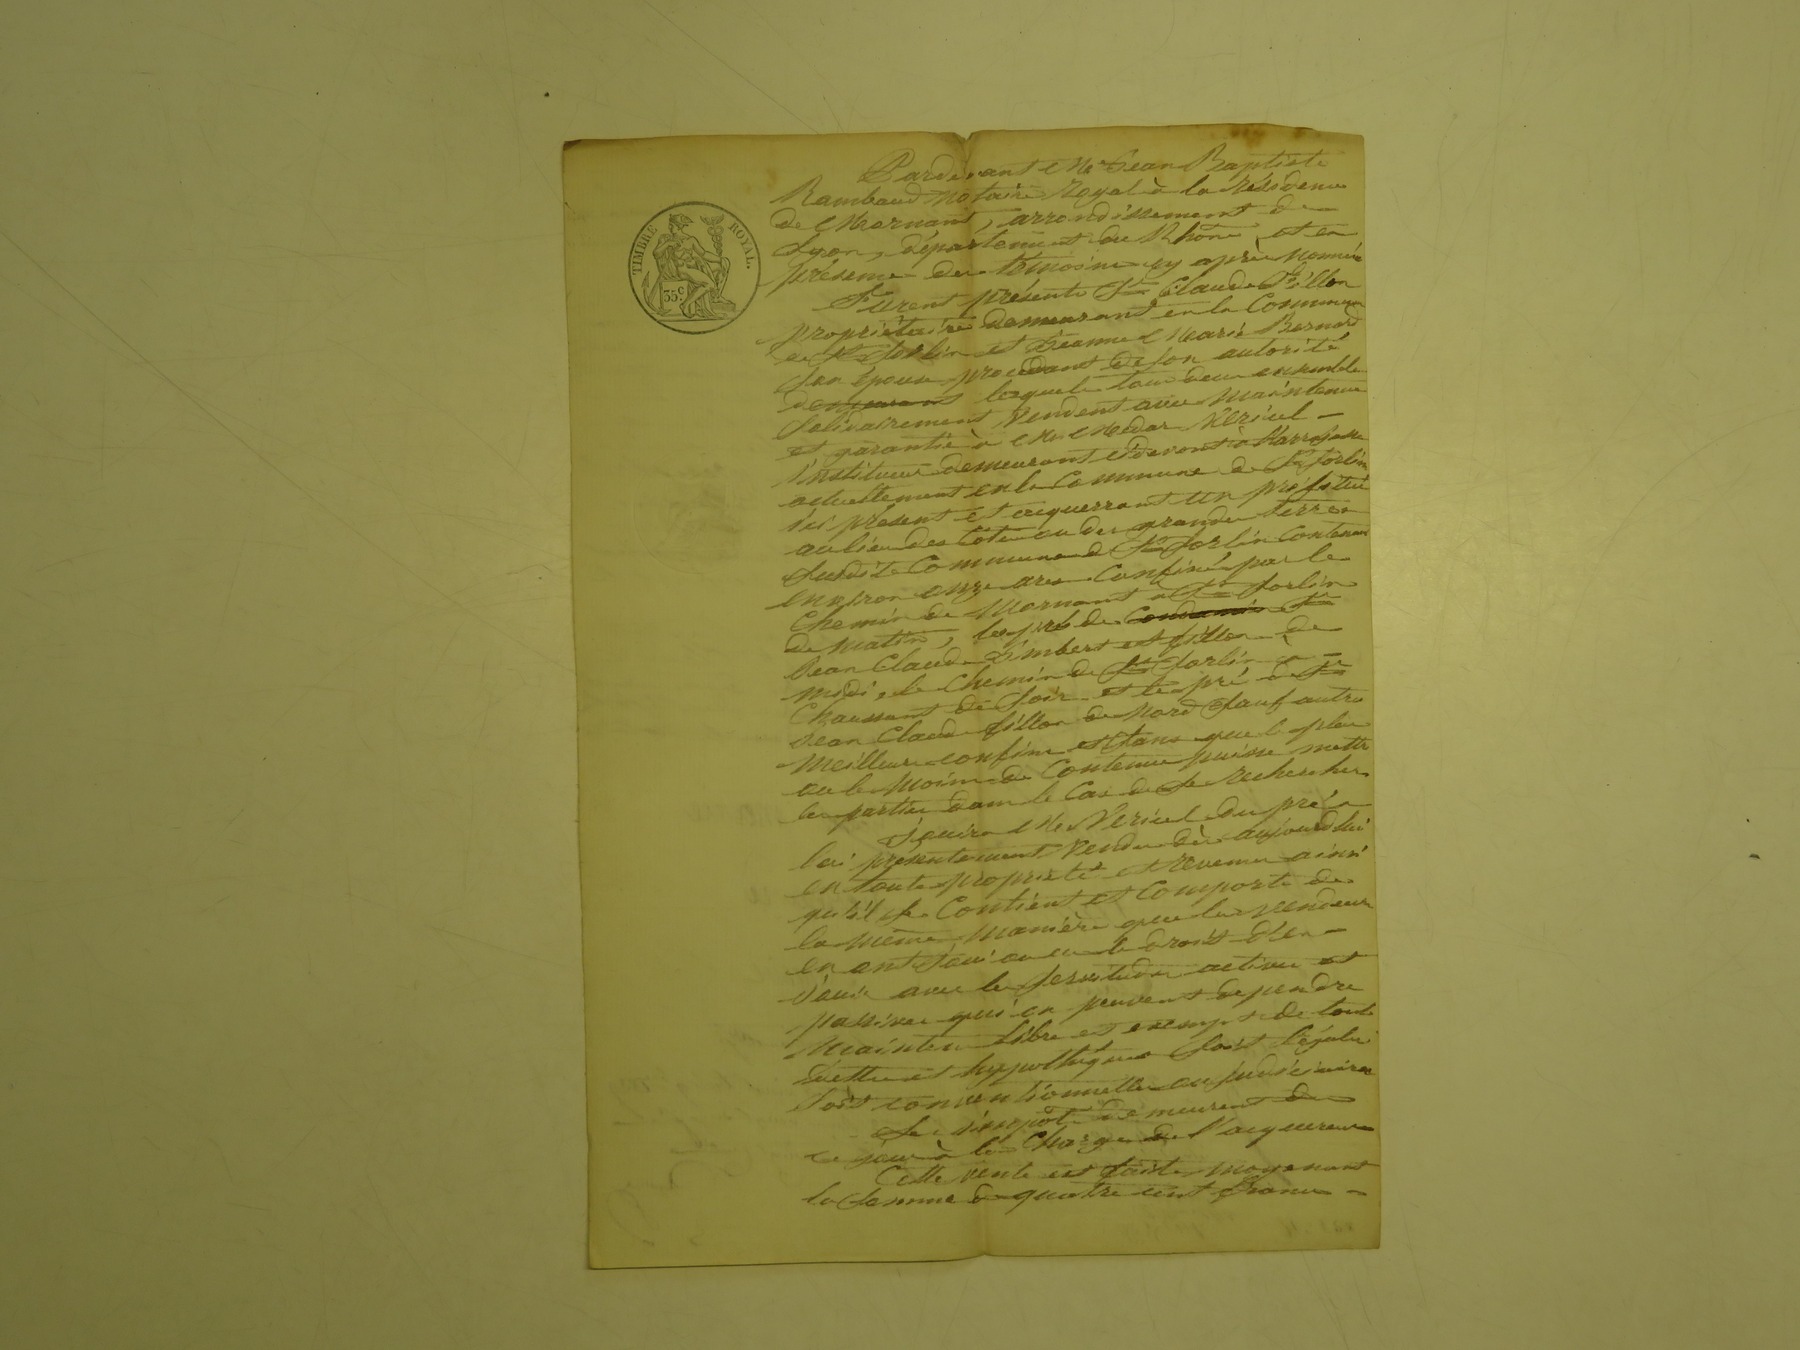 TIMBRE ROYAL.
35 c.
Pardevant Me Jean Baptiste
Rambaud notaire Royal à la résidence
de Mornant, arrondissement de
Lyon, département du Rhône, et en
présence des témoins cy après nommés
Furent présents Sr Claude Fillon
propriétaire demeurant en la Commune
de St Sorlin et Jeanne Marie Bernard
son épouse procédant de son autorité
demeurant lesquels tous deux ensemble
solidairement vendent avec maintenue
et garantie à Mr Medar Vericel
instituteur demeurant
actuellement en la Commune de St Sorlin
ici présent et acquerrant un pré situé
au lieu des Cotes ou des grandes terres
susdite Commune de St Sorlin Contenant
environ onze ares Confiné par le
Chemin de Mornant à St Sorlin
de matin, les prés de Sr
Jean Claude Imbert et fillon de
midi, le Chemin de St Sorlin à
Chaussant de soir et le pré à Sr
Jean Claude fillon de Nord Sauf autres
meilleurs confins et sans que le plus
ou le moins de Contenue puisse mettre
les parties dans le Cas de se rechercher
Jouira Me Vericel du pré à
lui présentement vendu dès aujourd'hui
en toute propriété et revenus ainsi
qu'il se Contient et Comporte de
la même manière que les vendeurs
en ont joui ou eu le droit d'en
jouir avec les servitudes actives et
passives qui en peuvent dépendre
maintenu libre et exempt de toute
dettes et hypothèques soit légales
soit conventionnelles ou judiciaires
Les impôts demeurent dès
ce jour à la Charge de l'acquereur
Cette vente est faite moyenant
la somme de quatre cent francs